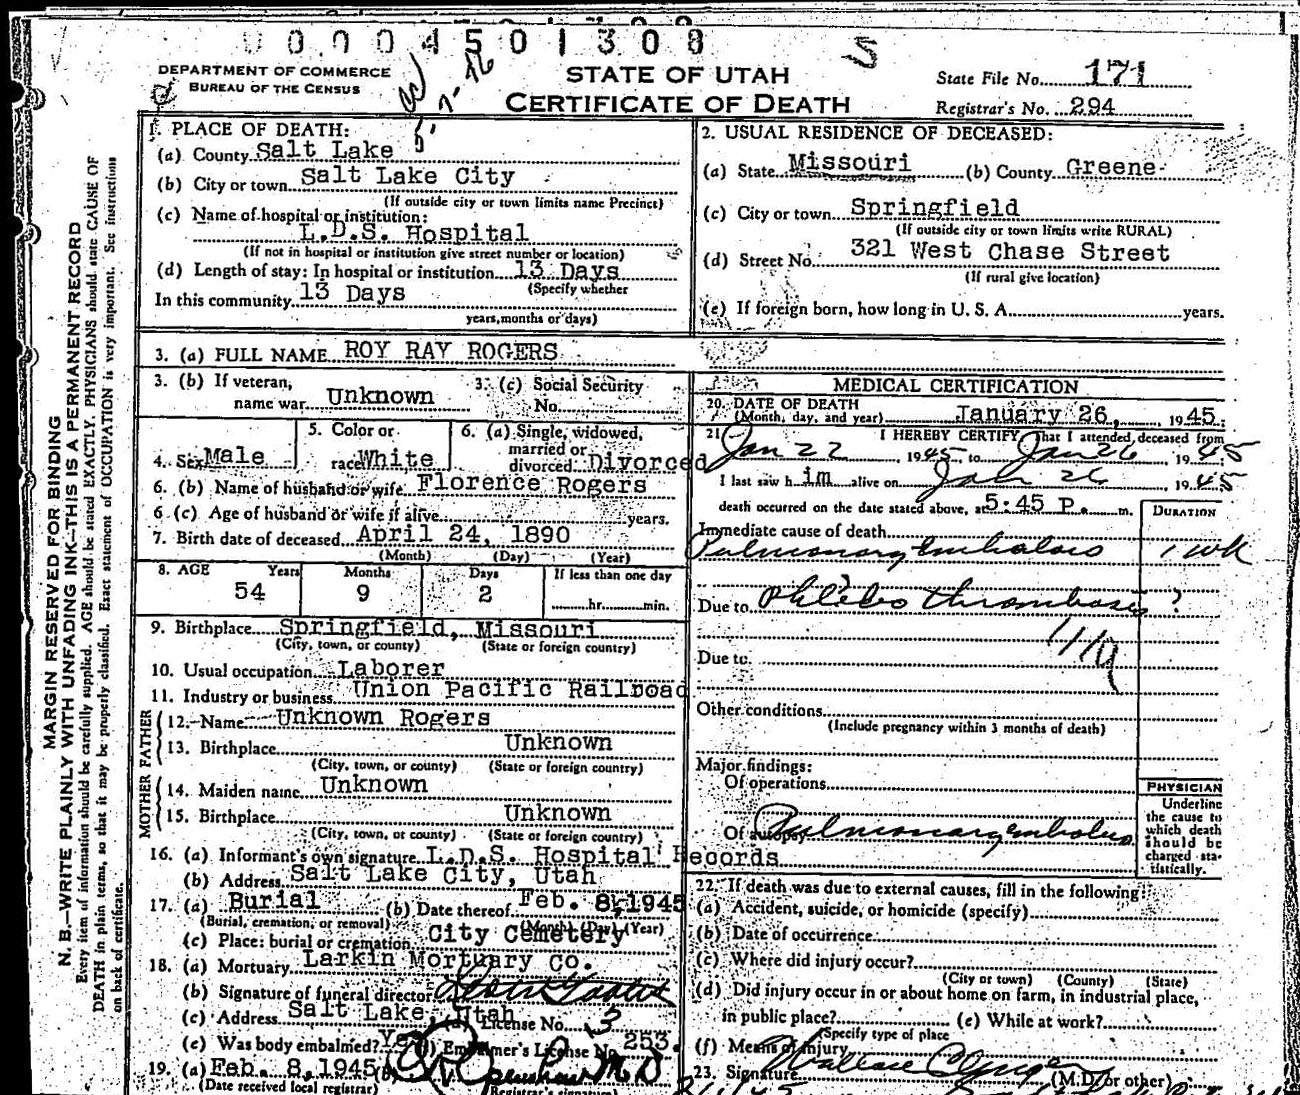 0 0 0 4 5 0 1 3 0 8
DEPARTMENT OF COMMERCE
BUREAU OF THE CENSUS
STATE OF UTAH
CERTIFICATE OF DEATH
State File No. 171
Registrar's No. 294
1. PLACE OF DEATH:
(a) County Salt Lake
(b) City or town Salt Lake City
(If outside city or town limits name Precinct)
(c) Name of hospital or institution:
L.D.S. Hospital
(If not in hospital or institution give street number or location)
(d) Length of stay: In hospital or institution 13 Days
(Specify whether
In this community 13 Days
years, months or days)
2. USUAL RESIDENCE OF DECEASED:
(a) State Missouri (b) County Greene
(c) City or town Springfield
(If outside city or town limits write RURAL)
(d) Street No. 321 West Chase Street
(If rural give location)
(e) If foreign born, how long in U. S. A. years.
3. (a) FULL NAME ROY RAY ROGERS
3. (b) If veteran, name war Unknown
3. (c) Social Security No.
4. Sex Male
5. Color or race White
6. (a) Single, widowed, married or divorced Divorced
6. (b) Name of husband or wife Florence Rogers
6 (c) Age of husband or wife if alive years.
7. Birth date of deceased April 24, 1890
(Month) (Day) (Year)
8. AGE Years Months Days If less than one day
54 9 2 hr. min.
9. Birthplace Springfield, Missouri
(City, town, or county) (State or foreign country)
10. Usual occupation Laborer
11. Industry or business Union Pacific Railroad
FATHER
12. Name Unknown Rogers
13. Birthplace Unknown
(City, town, or county) (State or foreign country)
MOTHER
14. Maiden name Unknown
15. Birthplace Unknown
(City, town, or county) (State or foreign country)
16. (a) Informant's own signature L.D.S. Hospital Records
(b) Address Salt Lake City, Utah
17. (a) Burial (b) Date thereof Feb. 8, 1945
(Burial, cremation, or removal) (Month) (Day) (Year)
(c) Place: burial or cremation City Cemetery
18. (a) Mortuary Larkin Mortuary Co.
(b) Signature of funeral director
(c) Address Salt Lake, Utah (d) License No. 3
(e) Was body embalmed? Yes (f) Embalmer's License No. 253.
19. (a) Feb. 8, 1945 (b) M D
(Date received local registrar) (Registrar's signature)
MEDICAL CERTIFICATION
20. DATE OF DEATH
(Month, day, and year) January 26, 1945.
21. I HEREBY CERTIFY, That I attended deceased from
Jan 22, 1945, to Jan 26, 1945
I last saw him alive on Jan 26, 1945
death occurred on the date stated above, at 5:45 P. m.
DURATION
Immediate cause of death
Pulmonary Embolus 1 wk
Due to Phlebo thrombosis ?
Due to
Other conditions
(Include pregnancy within 3 months of death)
Major findings:
Of operations
Of autopsy Pulmonary embolus
PHYSICIAN
Underline
the cause to
which death
should be
charged sta-
tistically.
22. If death was due to external causes, fill in the following:
(a) Accident, suicide, or homicide (specify)
(b) Date of occurrence
(c) Where did injury occur?
(City or town) (County) (State)
(d) Did injury occur in or about home on farm, in industrial place,
in public place? (e) While at work?
(Specify type of place
(f) Means of injury
23. Signature Wallace (M.D. or other)
MARGIN RESERVED FOR BINDING
N. B.—WRITE PLAINLY WITH UNFADING INK—THIS IS A PERMANENT RECORD
Every item of information should be carefully supplied. AGE should be stated EXACTLY. PHYSICIANS should state CAUSE OF
DEATH in plain terms, so that it may be properly classified. Exact statement of OCCUPATION is very important. See instruction
on back of certificate.